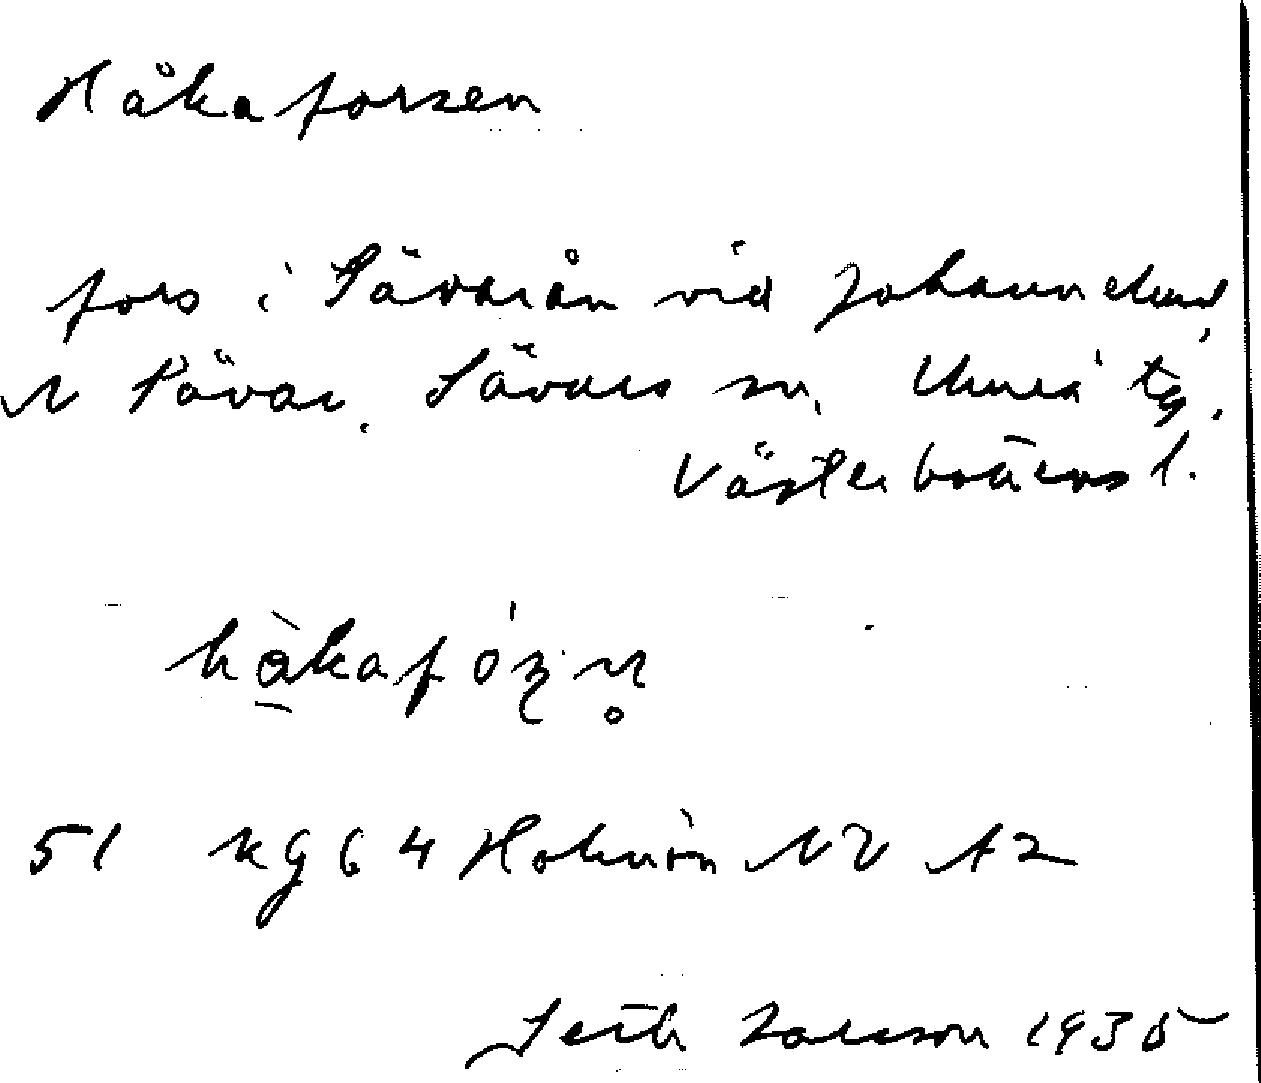 Håkaforsen
fors i Sävarån vid Johannelund,
N Sävar. Sävars sn, Umeå tg.
Västerbottens l.
51 kg 64 Holmön NV A2
Seth Larsson 1935